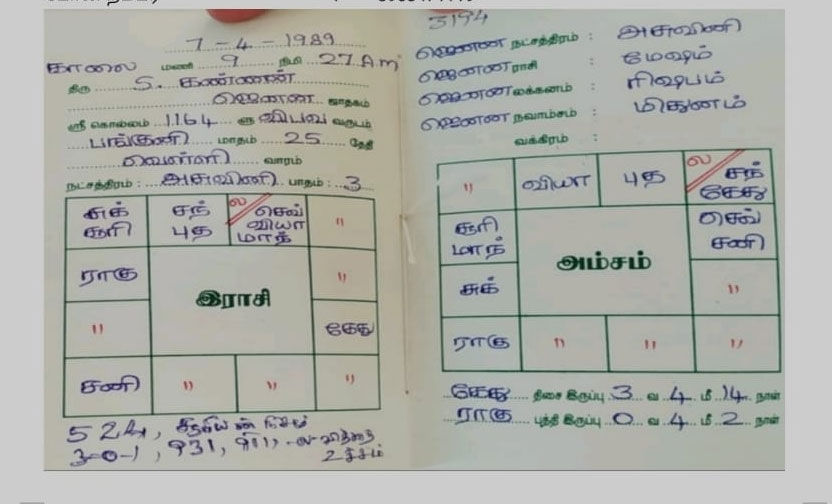 7-4-1989
காலை மணி 9 நிமி 27 Am
திரு S. கண்ணன்
ஜெனன ஜாதகம்
ஸ்ரீ கொல்லம் 1164 ளு விபவ வருடம்
பங்குனி மாதம் 25 தேதி
வெள்ளி வாரம்
நட்சத்திரம் : அசுவினி பாதம் : 3
சுக் சந் ல செவ் "
சூரி புத வியா
மாந்
ராகு இராசி "
" கேது
சனி " " "
524,
3-0-1, 931, 911,
உச்சம்
3194
ஜெனன நட்சத்திரம் : அசுவினி
ஜெனன ராசி : மேஷம்
ஜெனன லக்கனம் : ரிஷபம்
ஜெனன நவாம்சம் : மிதுனம்
வக்கிரம் :
" வியா புத ல சந்
கேது
சூரி அம்சம் செவ்
மாந் சனி
சுக் "
ராகு " " "
கேது திசை இருப்பு 3 வ 4 மீ 14 நாள்
ராகு புத்தி இருப்பு 0 வ 4 மீ 2 நாள்